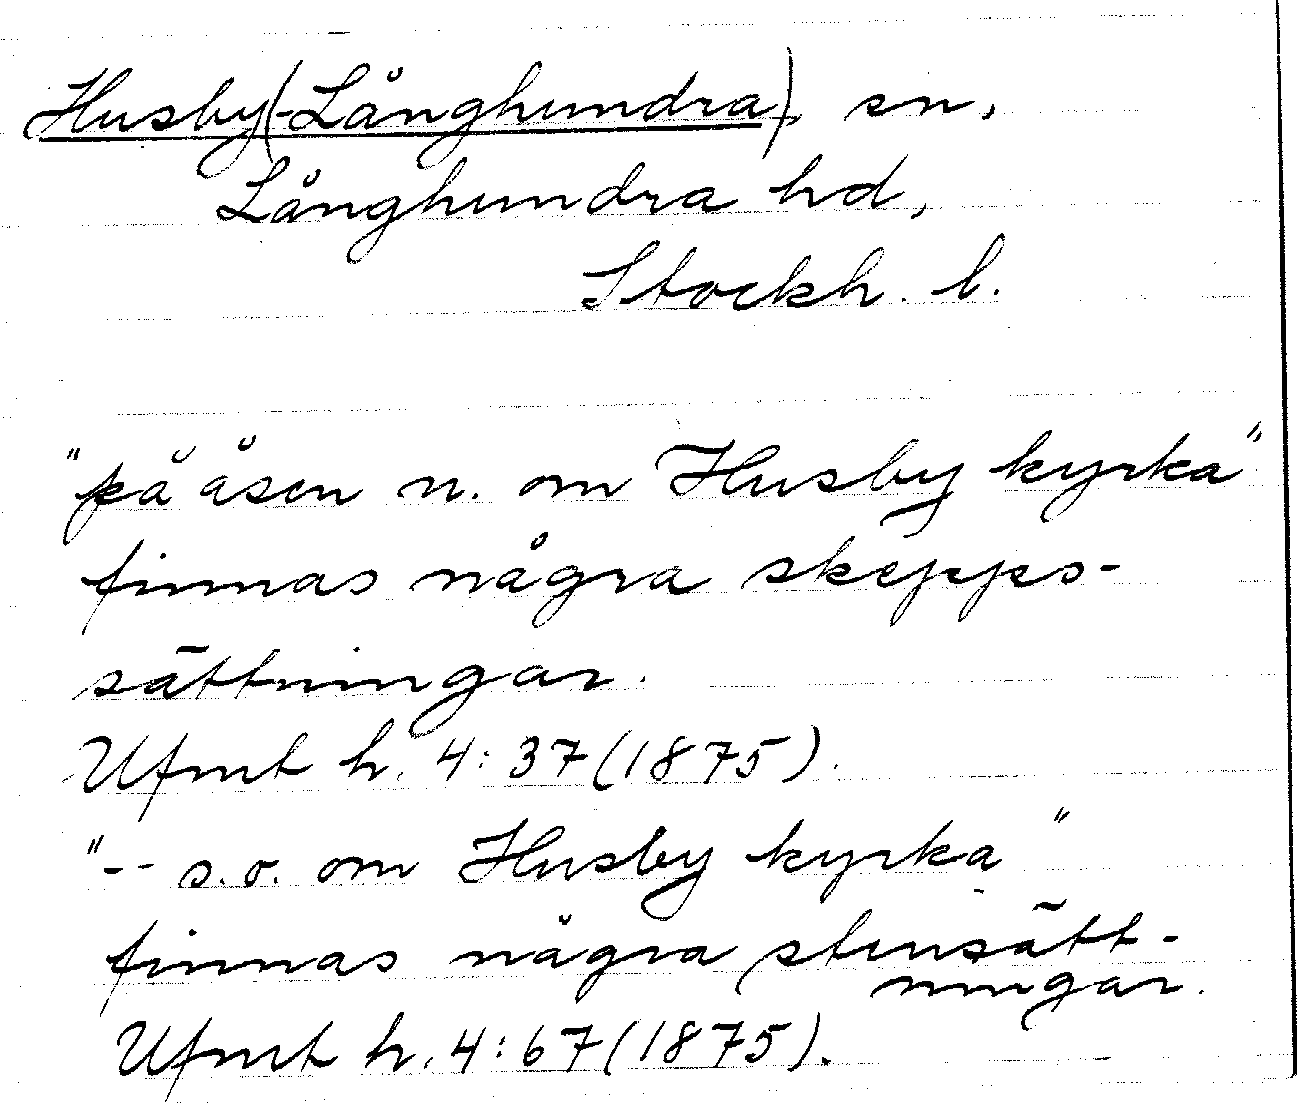 Husby(-Långhundra), sn,
Långhundra hd,
Stockh. l.
"på åsen n. om Husby kyrka"
finnas några skepps-
sättningar.
Ufmt h. 4:37(1875).
"-- s.o. om Husby kyrka"
finnas några stensätt-
ningar.
Ufmt h. 4:67(1875).